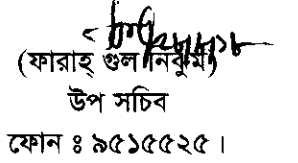 (ফারাহ্ গুল নিঝুম)
উপ সচিব
ফোন ঃ ৯৫১৫৫২৫ ।